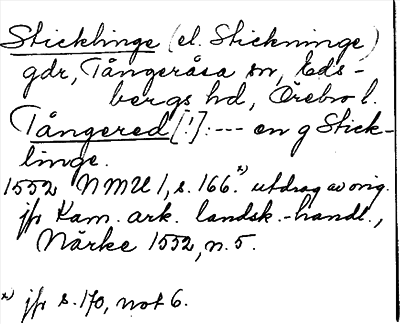 Sticklinge (el. Stickninge)
gdr, Tångeråsa sn, Eds-
bergs hd, Örebro l.
Tångered [!]: --- en g Stick-
linge.
1552 NMU 1, s. 166.*) utdrag av orig.
jfr Kam. ark. landsk.-handl.,
Närke 1552, n. 5.
*) jfr s. 170, not 6.